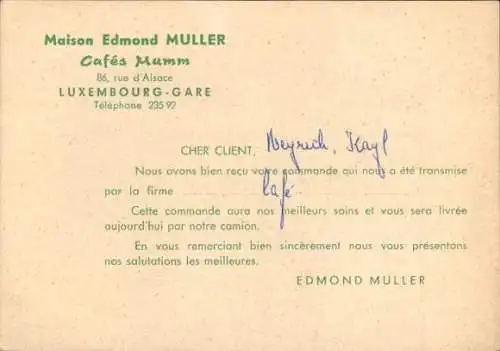 Maison Edmond MULLER
Cafés Mumm
86, rue d'Alsace
LUXEMBOURG-GARE
Téléphone 235 92
CHER CLIENT, Meyrich, Kayl
Nous avons bien reçu votre commande qui nous a été transmise
par la firme Café
Cette commande aura nos meilleurs soins et vous sera livrée
aujourd'hui par notre camion.
En vous remerciant bien sincèrement nous vous présentons
nos salutations les meilleures.
EDMOND MULLER